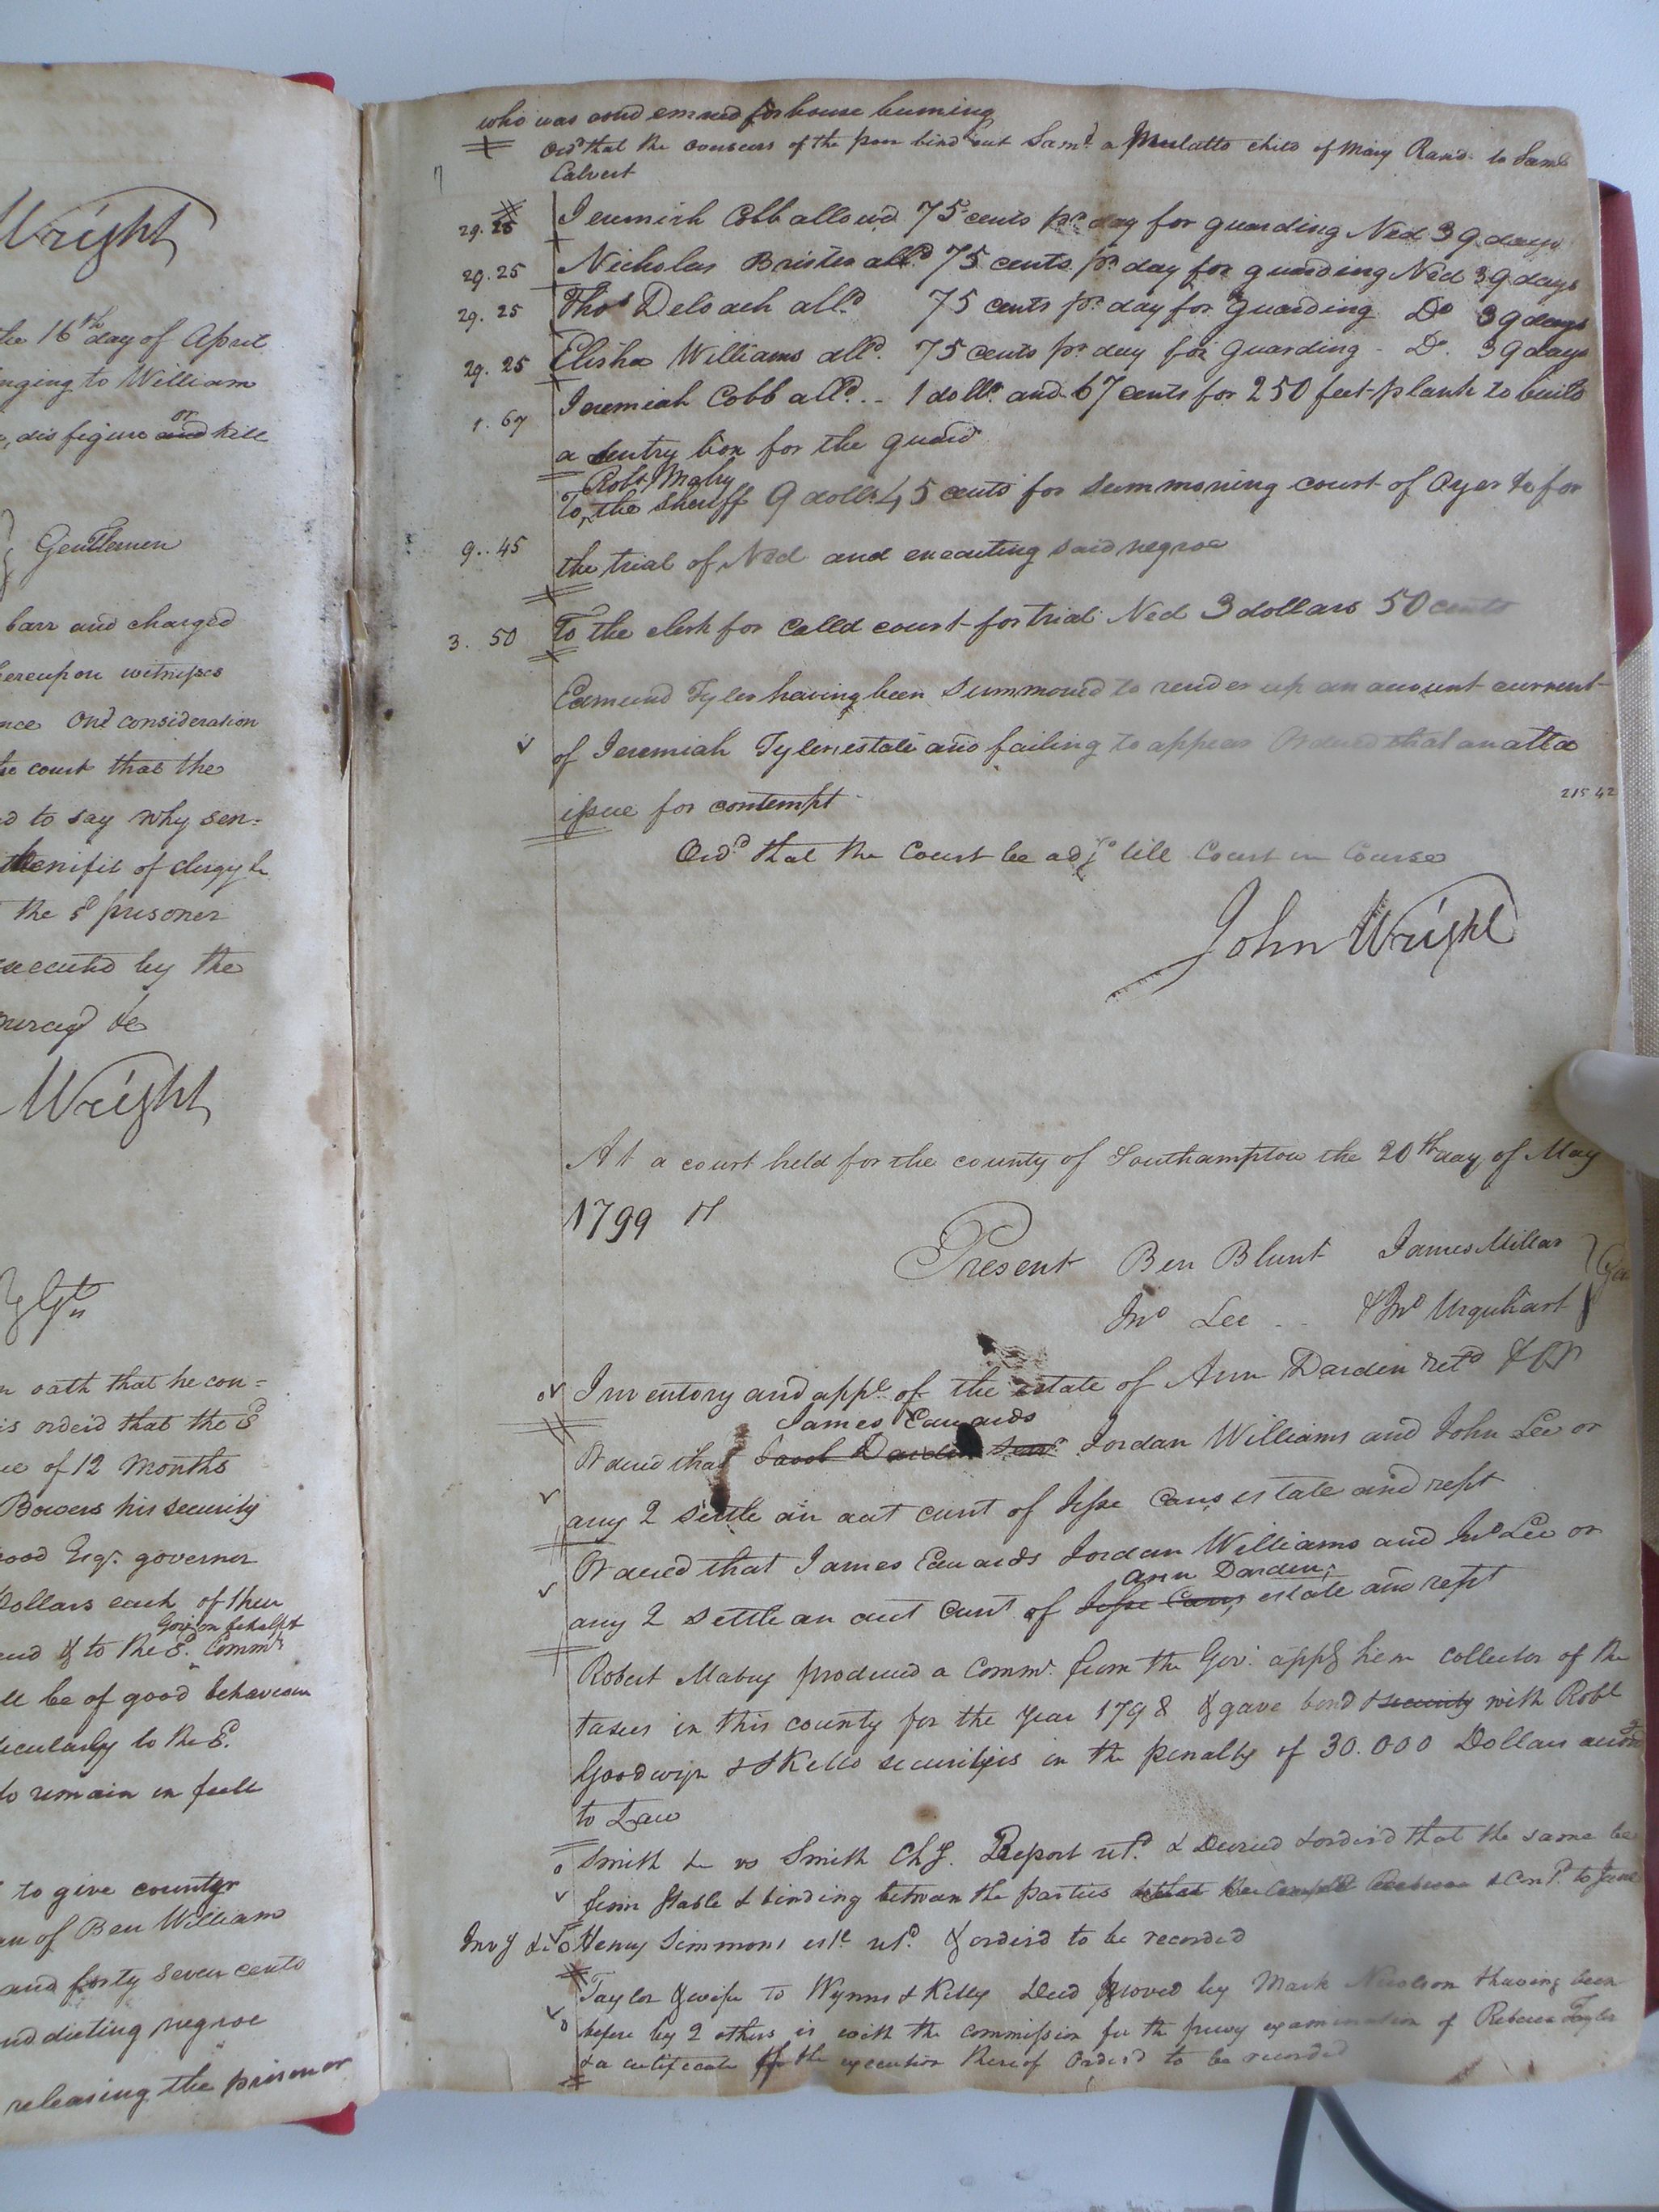 Wright
the 16th day of April
nging to William
or
disfigure and kill
Gentlemen
barr and charged
hereupon witnesses
nce Ond consideration
he court that the
d to say why sen=
benifit of clergy &c
the sd prisoner
executed by the
mercy &c
Wright
Gts
n oath that he con=
is orderd that the sd
ce of 12 months
Bowers his security
ood Esqr. governor
dollars each of their
Govr on behalf
and & to the sd. Commth
ll be of good behaveour
ticularly to the sd.
to remain in full
to give county
an of Ben William
and forty seven cents
nd dieting negroe
releasing the prisoner
who was condemned for house burning
Ord that the overseers of the poor bind out Saml a Mulatto child of Mary Rand to Saml
Calvert
29. 25 Jeremiah Cobb allowed 75 cents pr day for guarding Ned 39 days
29. 25 Nicholas Brister alld 75 cents pr day for guarding Ned 39 days
29. 25 Thos Deloach alld. 75 cents pr day for guarding Do 39 days
29. 25 Elisha Williams alld. 75 cents pr day for guarding - Do. 39 days
1. 67 Jeremiah Cobb alld. .. 1 dollr and 67 cents for 250 feet plank to build
a sentry box for the guard
Robt Mabry
To the sheriff 9 dolls 45 cents for summoning court of Oyer &c for
9.. 45 the trial of Ned and executing said negroe
3. 50 To the clerk for calld court for trial Ned 3 dollars 50 cents
Edmund Tyler having been summoned to render up an account current
of Jeremiah Tylers estate and failing to appear Ordered that an atta
issue for contempt
215 42
Ord that the Court be adjd till Court in Course
John Wright
At a court held for the county of Southampton the 20th day of May
1799
Present Ben Blunt James Millar
Jno Lee .. & Jno Urquhart
Inventory and appt of the estate of Ann Darden retd & OR
James Edwards
Ordered that Jacob Darden Senr Jordan Williams and John Lee or
any 2 settle an act curt of Jesse Carrs estate and rept
Ordered that James Edwards Jordan Williams and Jno Lee or
Ann Dardens
any 2 settle an act curt of Jesse Carrs estate and rept
Robert Mabry produced a Commn. from the Govr. appg him collector of the
taxes in this county for the year 1798 & gave bond & security with Robt
Goodwyn & S Kello securities in the penalty of 30.000 Dollars accordg
to Law
Smith &c vs Smith Chy. Report retd. & Decreed & orderd that the same be
firm stable & binding between the parties
Invy &c Henry Simmons este retd. & orderd to be recorded
Taylor & wife To Wynns & Kelly Deed proved by Mark Nicolson & having been
before by 2 others is with the commission for the privy examination of Rebecca Taylor
& a certificate of the execution thereof Orderd to be recorded